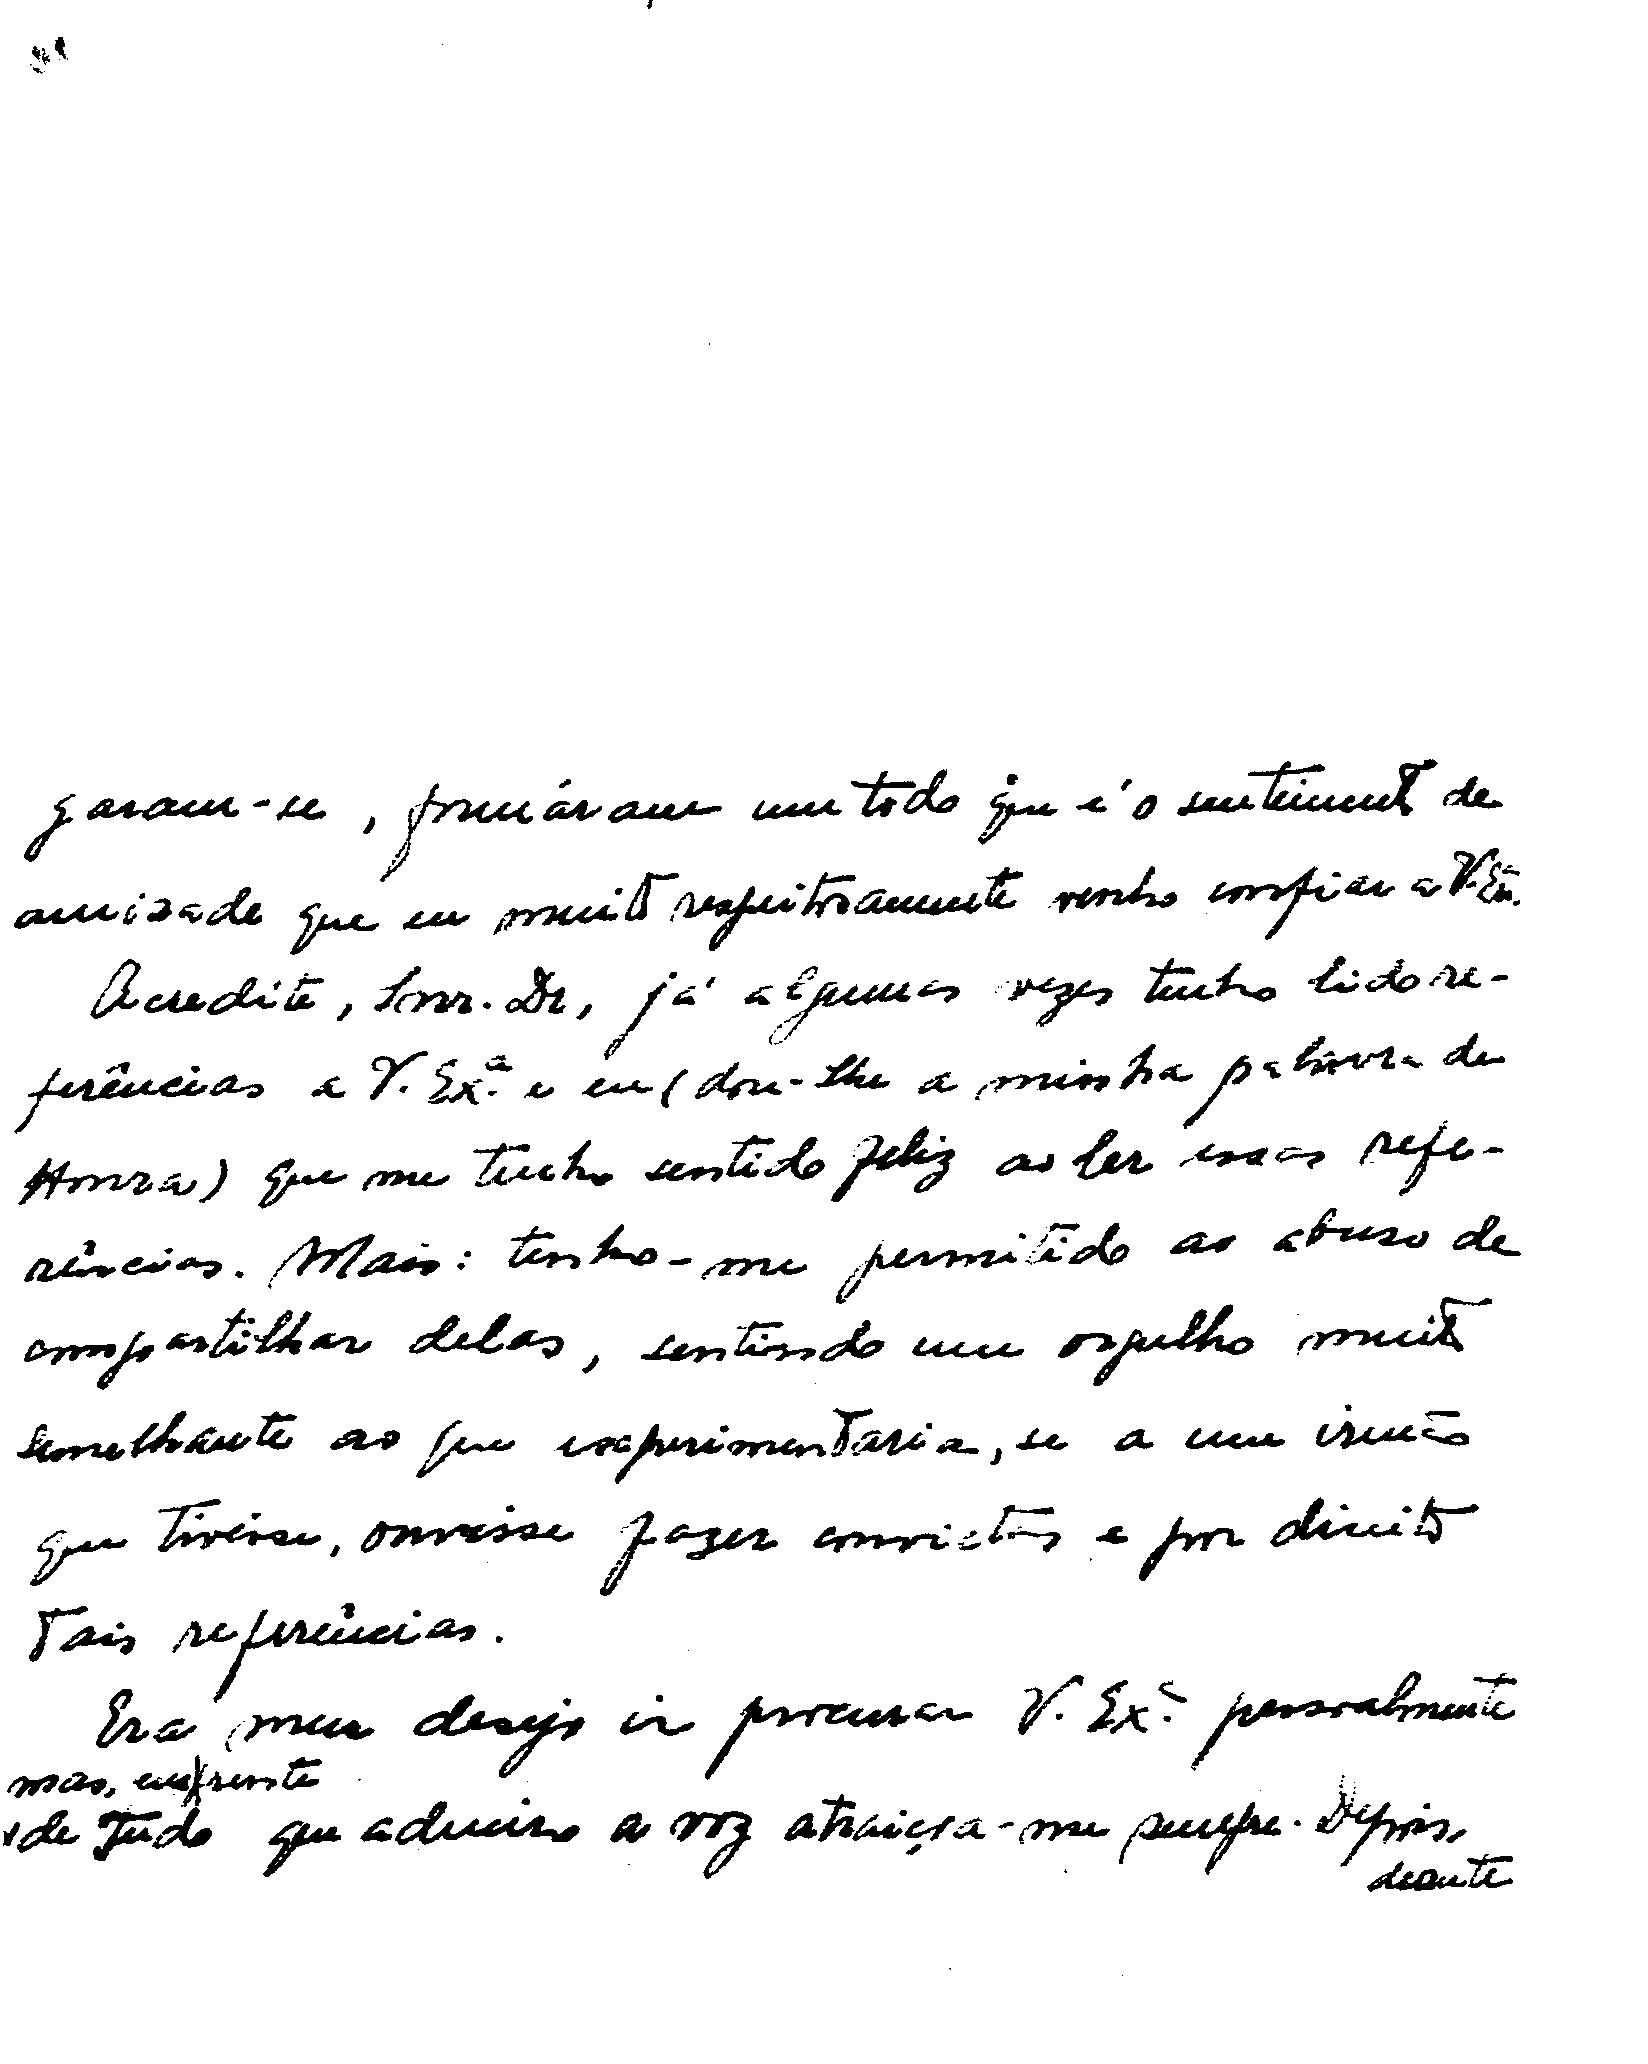 garam-se, formáram um todo que é o sentimento de
amizade que eu muito respeitosamente venho confiar a V. Ex.
Acredite, Snr. Dr, já algumas vezes tenho lido re-
ferências a V. Ex.ª e eu (dou-lhe a minha palavra de
Honra) que me tenho sentido feliz ao ler essas refe-
rências. Mais: tenho-me permitido ao abuso de
compartilhar delas, sentindo um orgulho muito
semelhante ao que experimentaria, se a um irmão
que tivesse, ouvisse fazer convictas e por direito
tais referências.
Era meu desejo ir procurar V. Ex.ª pessoalmente
mas, em frente
de tudo que admiro a voz atraiçoa-me sempre. Depois,
deante